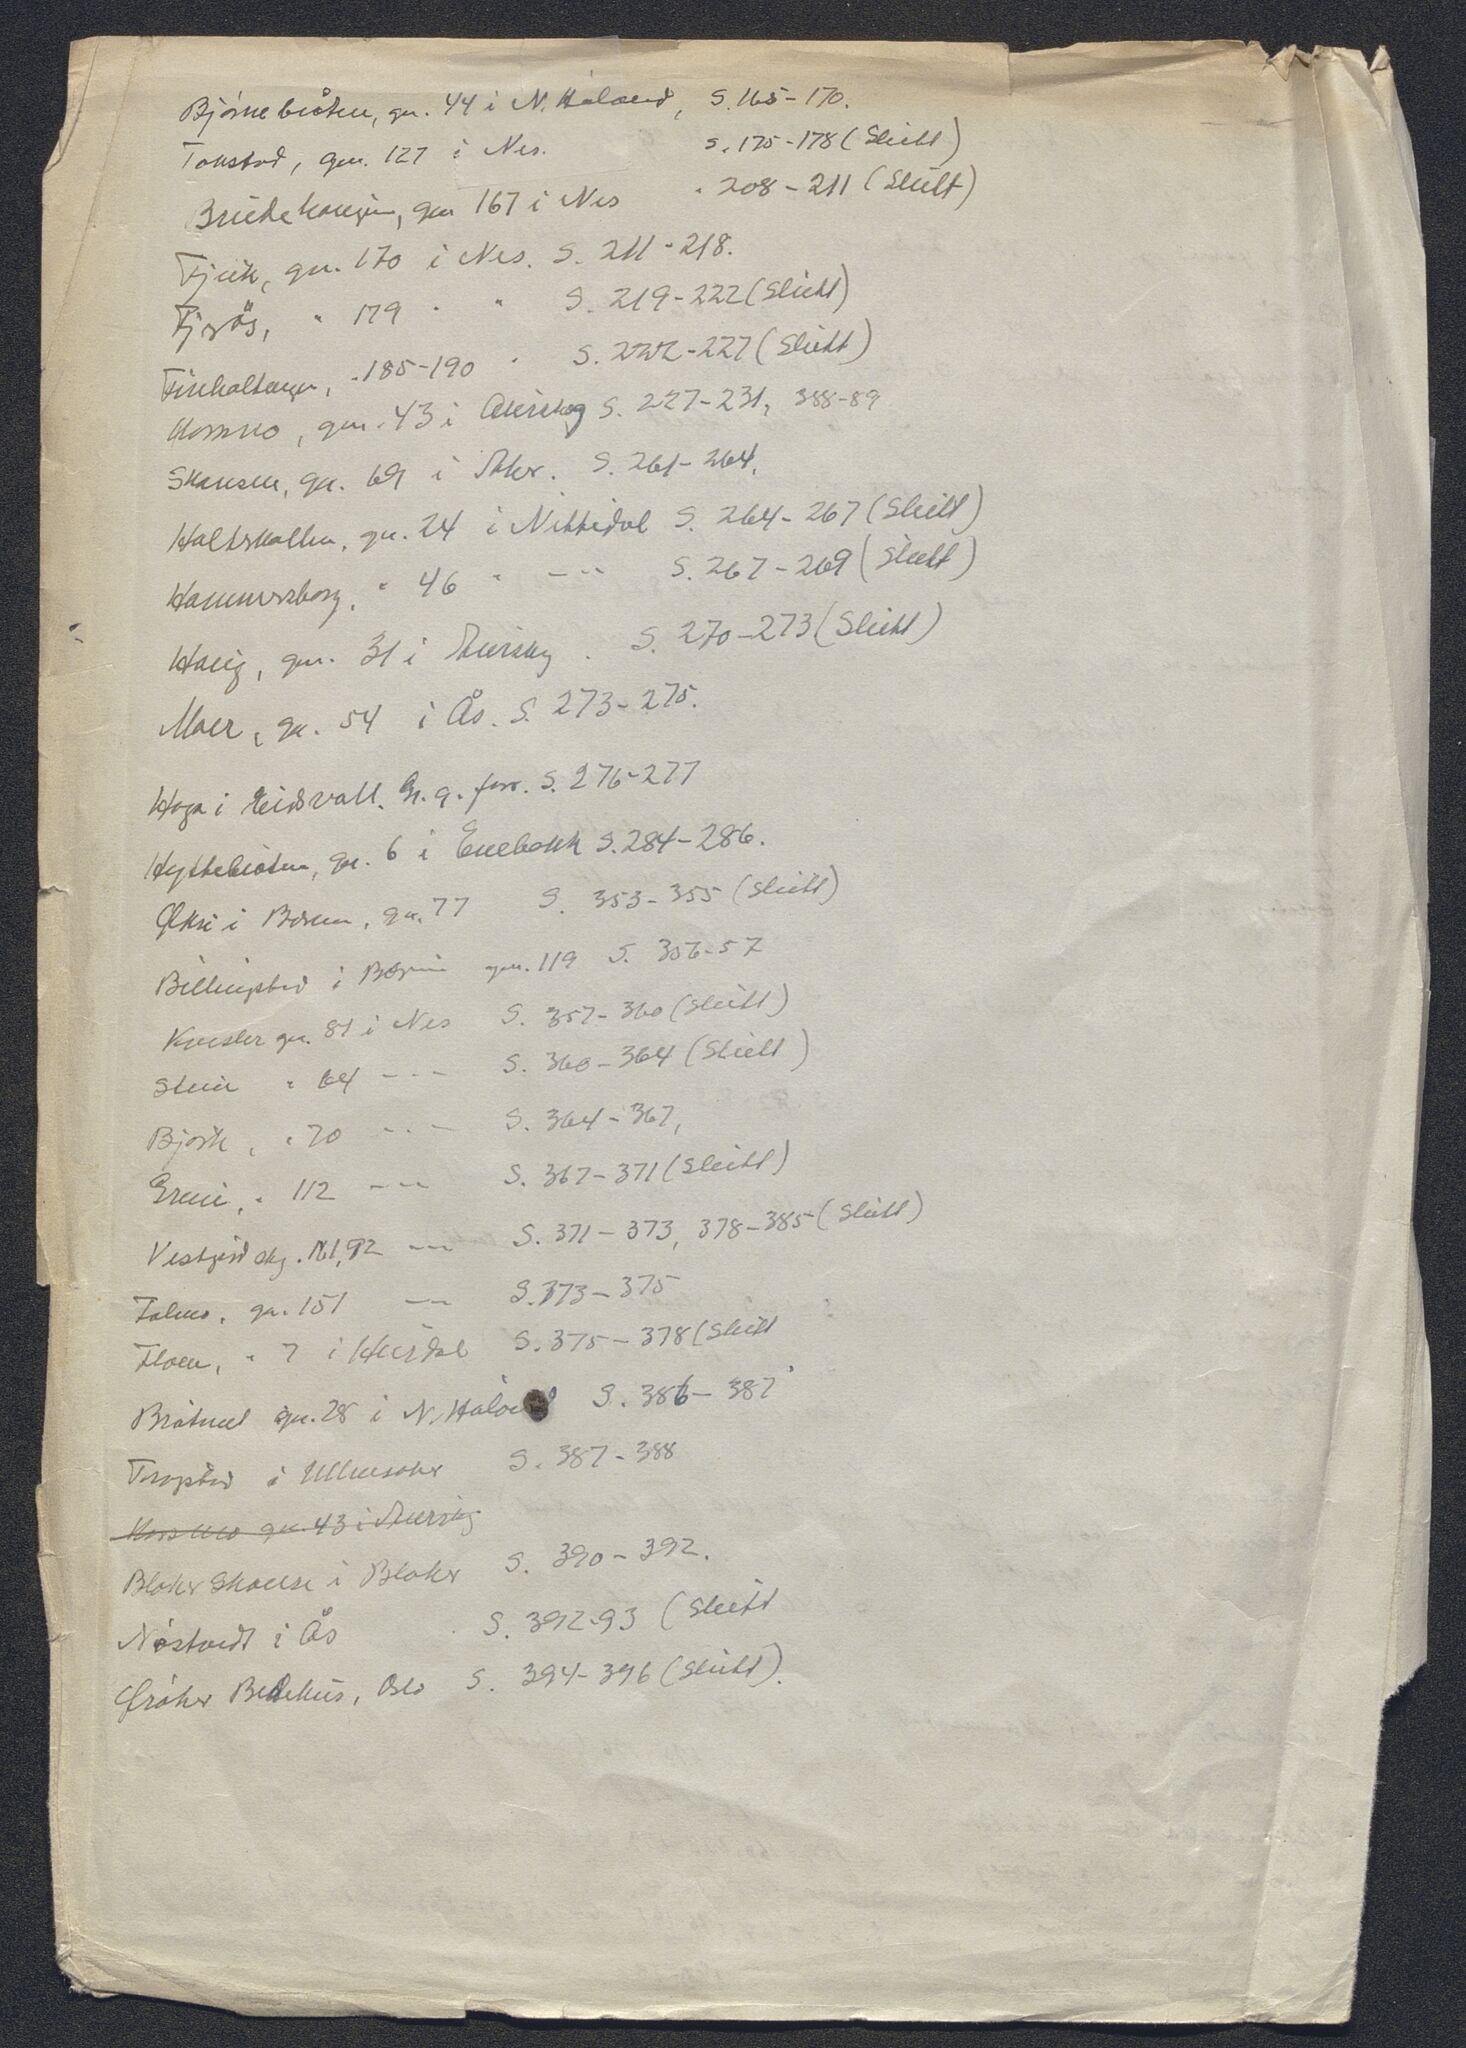 Bjørnebråten, gn. 44 i N. Høland, S. 165-170.
Tokstad, gn. 127 i Nes. S. 175-178 (Slutt)
Brudehaugen, gn 167 i Nes " 208-211 (Slutt)
Fjuk, gn. 170 i Nes. S. 211-218.
Fjøs, " 179 " " S. 219-222 (Slutt)
" 185-190 " S. 222-227 (Slutt)
Kosmo, gn. 43 i Aurskog S. 227-231, 388-89
Skansen, gn. 69 i Aker. S. 261-264,
gn. 24 i Nittedal S. 264-267 (Slutt)
Hammersborg, " 46 " --- S. 267-269 (Slutt)
Haug, gn. 31 i Aurskog. S. 270-273 (Slutt)
Moer, gn. 54 i Ås. S. 273-275.
Haga i Eidsvall. S. 276-277
Hyttebråten, gn. 6 i Enebakk S. 284-286.
i Bærum, gn. 77 S. 353-355 (Slutt)
Billingstad i Bærum gn. 119 S. 356-57
gn. 81 i Nes S. 357-360 (Slutt)
" 64 --- S. 360-364 (Slutt)
Bjørk, " 70 --- S. 364-367,
Greni, " 112 --- S. 367-371 (Slutt)
--- S. 371-373, 378-385 (Slutt)
gn. 151 -- S. 373-375
Floen, " 7 i Hurdal S. 375-378 (Slutt
Bråtnes gn. 28 i N. Høland S. 386-387
i Ullensaker S. 387-388
Kosmo gn. 43 i Aurskog
Blaker Skanse i Blaker S. 390-392.
Nøstvedt i Ås S. 392-93 (Slutt
Bedehus, Oslo S. 394-396 (Slutt).